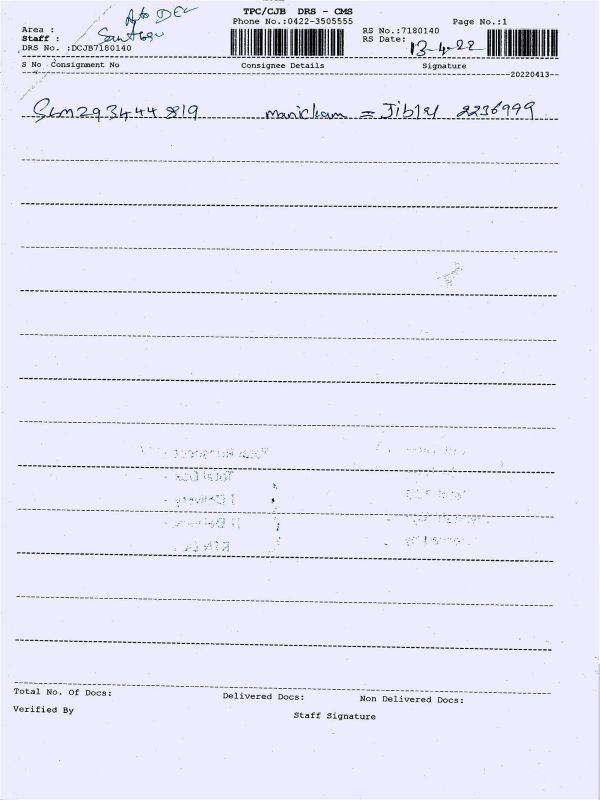 TPC/CJB DRS - CMS
Phone No.:0422-3505555
Page No.:1
Area :
Staff :
DRS No. :DCJB7180140
RS No.:7180140
RS Date: 13-4-22
S No Consignment No Consignee Details Signature
20220413
SLM293444819 manickam =
2236999
Total Docs
I Delivery
II Delivery
Total No. Of Docs: Delivered Docs: Non Delivered Docs:
Verified By Staff Signature